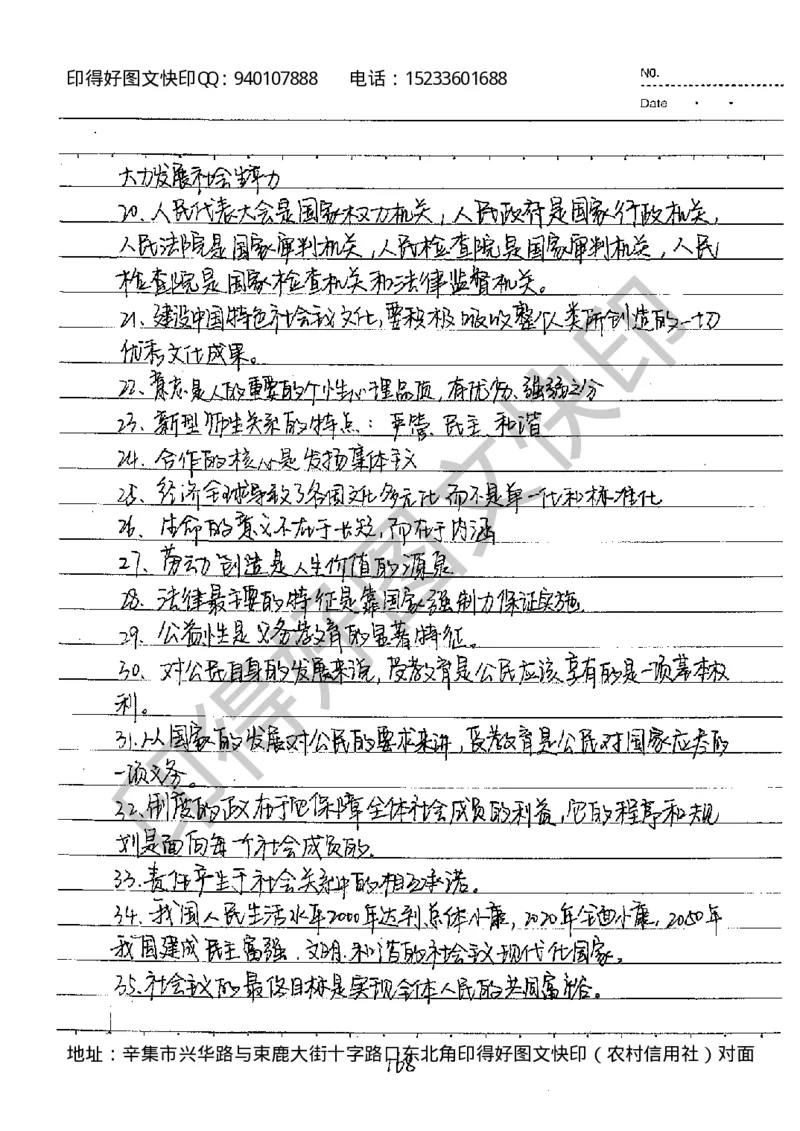 印得好图文快印QQ：940107888 电话：15233601688
No.
Date
大力发展社会生产力
20、人民代表大会是国家权力机关，人民政府是国家行政机关，
人民法院是国家审判机关，人民检查院是国家审判机关，人民
检查院是国家检查机关和法律监督机关。
21、建设中国特色社会主义文化，要积极吸收整个人类所创造的一切
优秀文化成果。
22、意志是人的重要的个性心理品质，有优劣、强弱之分
23、新型师生关系的特点：平等、民主、和谐
24、合作的核心是发扬集体主义
25、经济全球导致了各国文化多元化而不是单一化和标准化
26、生命的意义不在于长短，而在于内涵
27、劳动创造是人生价值的源泉
28、法律最主要的特征是靠国家强制力保证实施
29、公益性是义务教育的显著特征。
30、对公民自身的发展来说，受教育是公民应该享有的是一项基本权
利。
31.从国家的发展对公民的要求来讲，受教育是公民对国家应尽的
一项义务。
32.制度的政在于它保障全体社会成员的利益，它的程序和规
划是面向每个社会成员的.
33.责任产生于社会关系中的相互承诺。
34、我国人民生活水平2000年达到总体小康，2020年全面小康，2050年
我国建成民主富强.文明.和谐的社会主义现代化国家。
35.社会主义的最终目标是实现全体人民的共同富裕。
地址：辛集市兴华路与束鹿大街十字路口东北角印得好图文快印（农村信用社）对面
168
印得好图文快印